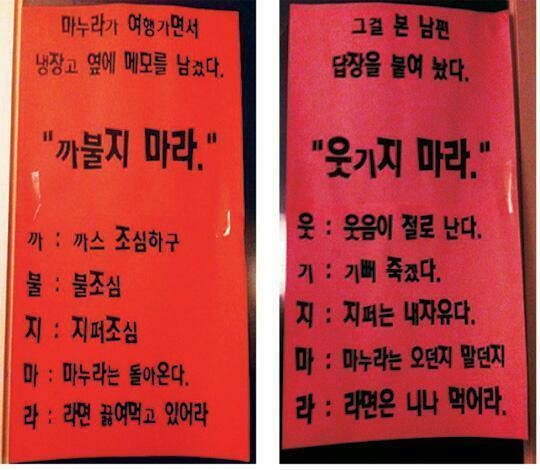 마누라가 여행가면서
냉장고 옆에 메모를 남겼다.
"까불지 마라."
까 : 까스 조심하구
불 : 불조심
지 : 지퍼조심
마 : 마누라는 돌아온다.
라 : 라면 끓여먹고 있어라
그걸 본 남편
답장을 붙여 놨다.
"웃기지 마라."
웃 : 웃음이 절로 난다.
기 : 기뻐 죽겠다.
지 : 지퍼는 내자유다.
마 : 마누라는 오던지 말던지
라 : 라면은 니나 먹어라.